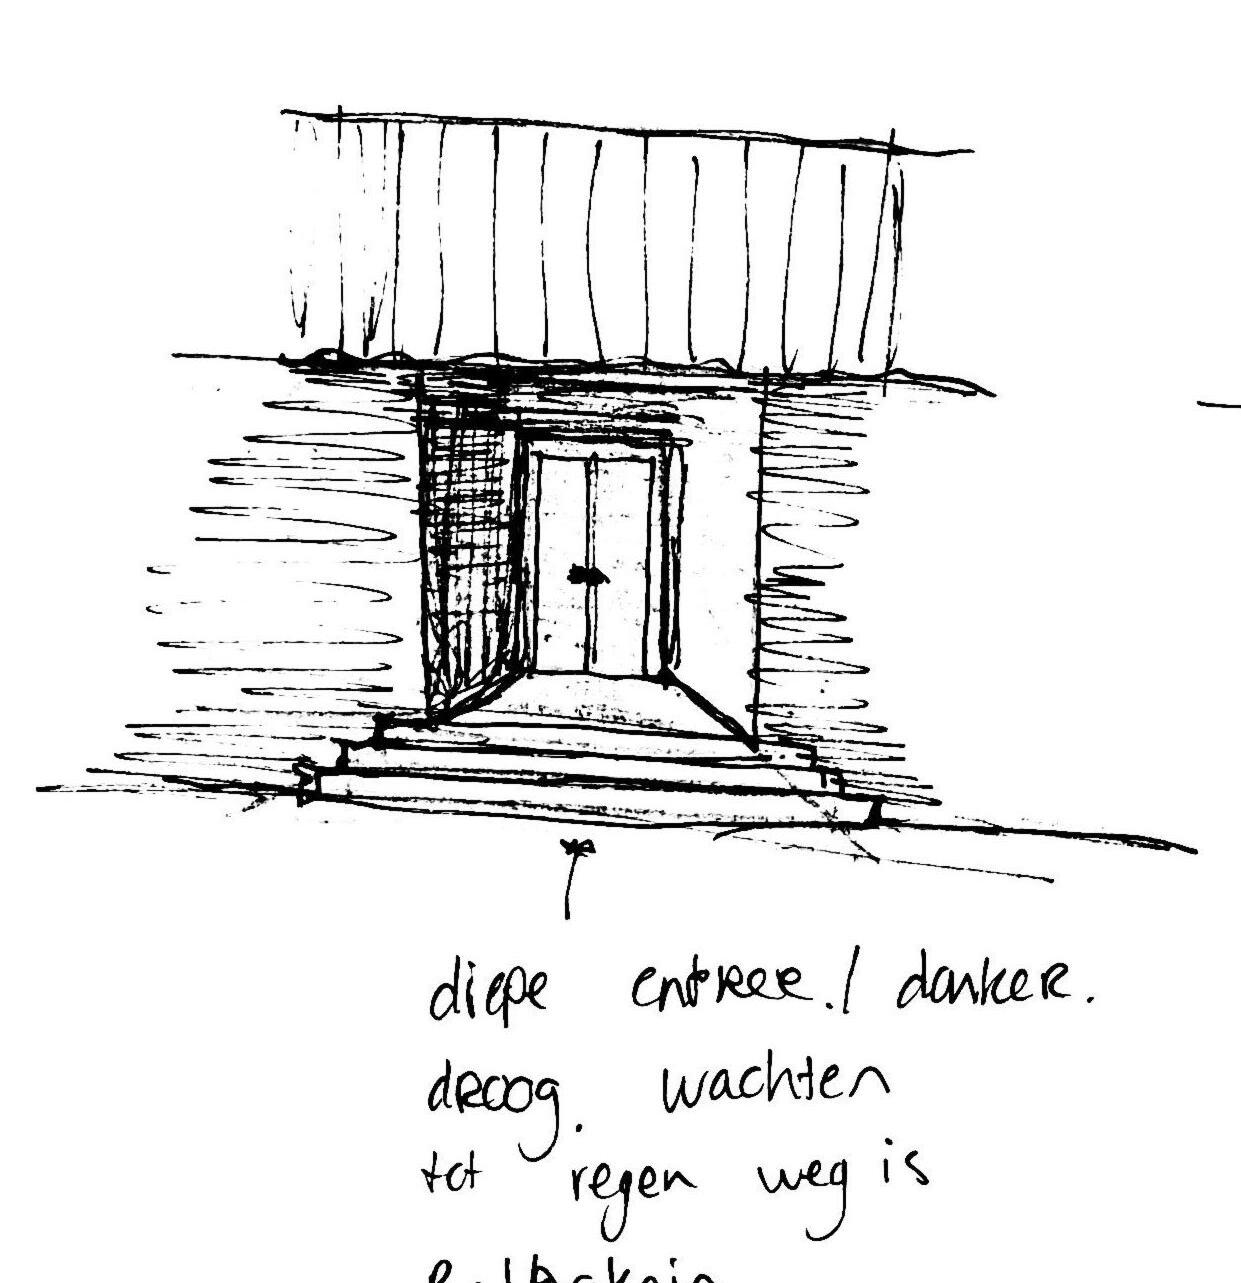 diepe entree. / donker.
droog. wachten
tot regen weg is